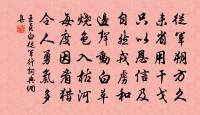 從軍朔方久
未省用干戈
只以恩信及
自然戎虜和
邊聲動白草
燒色入枯河
每度因看獵
令人勇氣多
王貞白從軍行詞典網
集